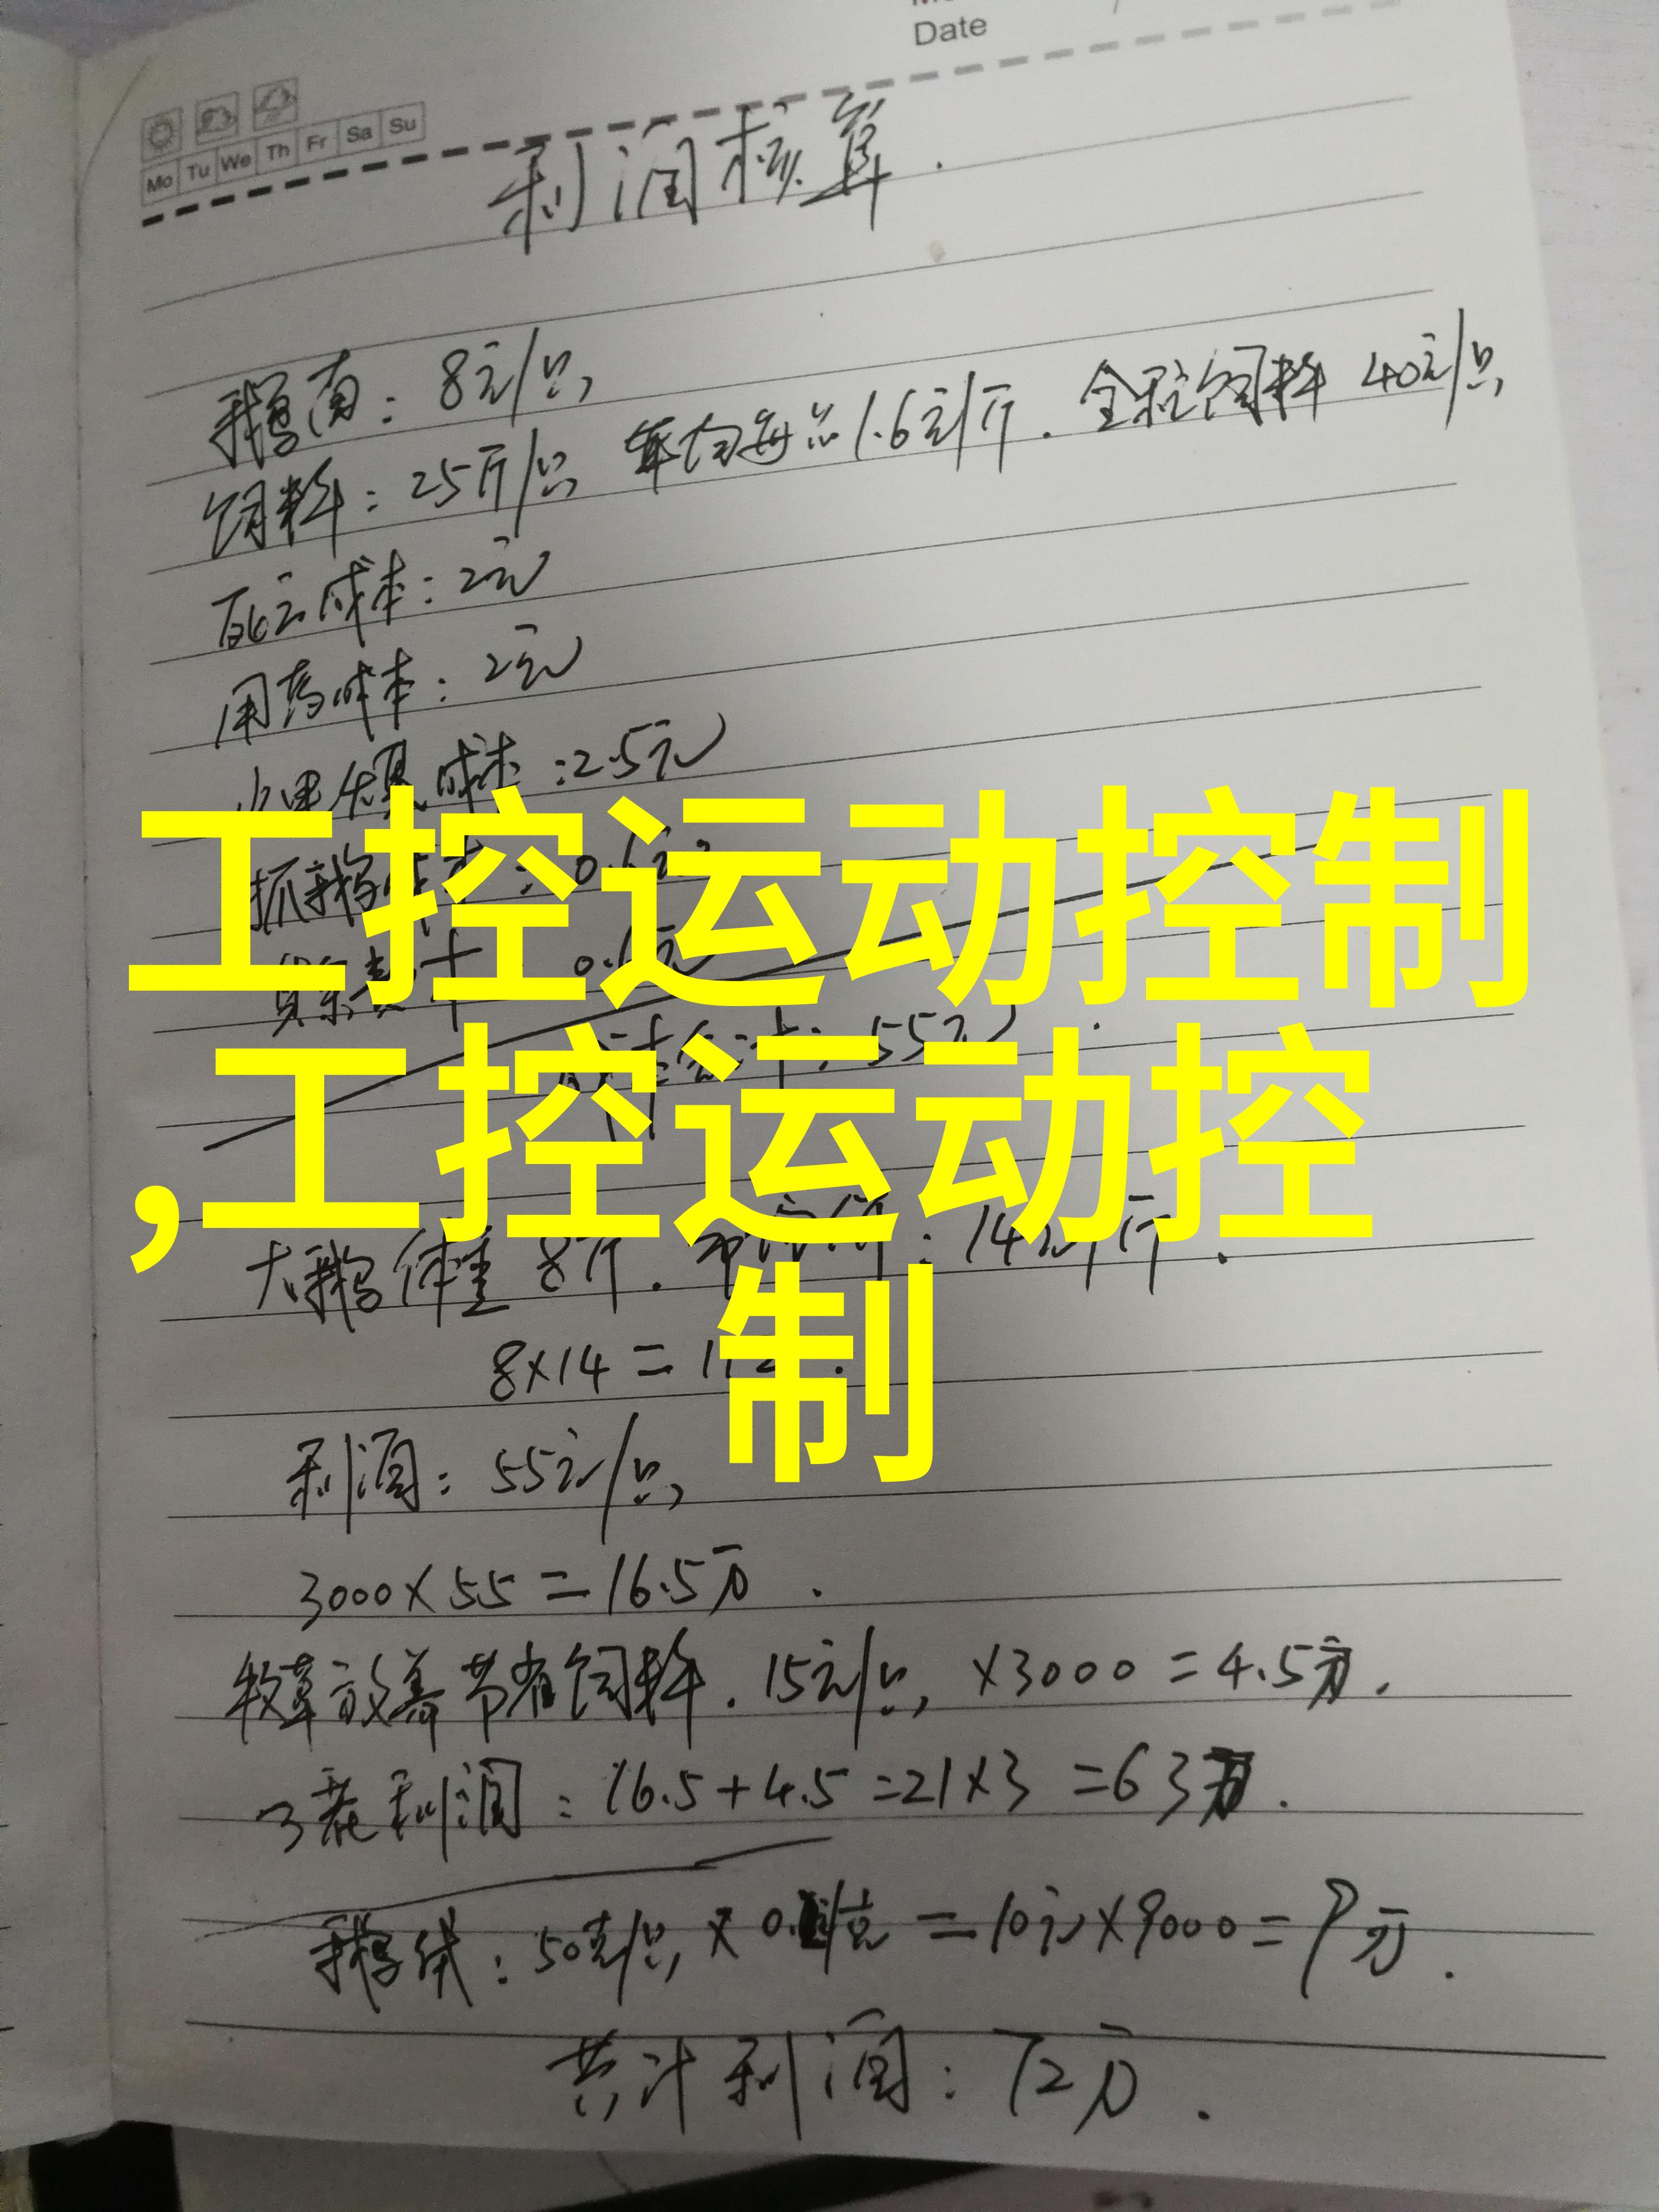 Date
Mo Tu We Th Fr Sa Su
利润核算.
鹅苗: 8元/只,
饲料: 25斤/只, 平均每斤1.6元/斤. 全程饲料 40元/只,
死亡成本: 2元
用药成本: 2元
成本:2.5元
抓鹅
合计: 55元.
工控运动控制
,工控运动控
制
大鹅体重 8斤. : 14元/斤.
8×14=112.
利润: 55元/只,
3000×55=16.5万.
牧草放养节省饲料. 15元/只, ×3000=4.5万.
3茬利润: 16.5+4.5=21×3=63万.
鹅绒: 50克/只, × =10元×9000=9万.
共计利润: 72万.